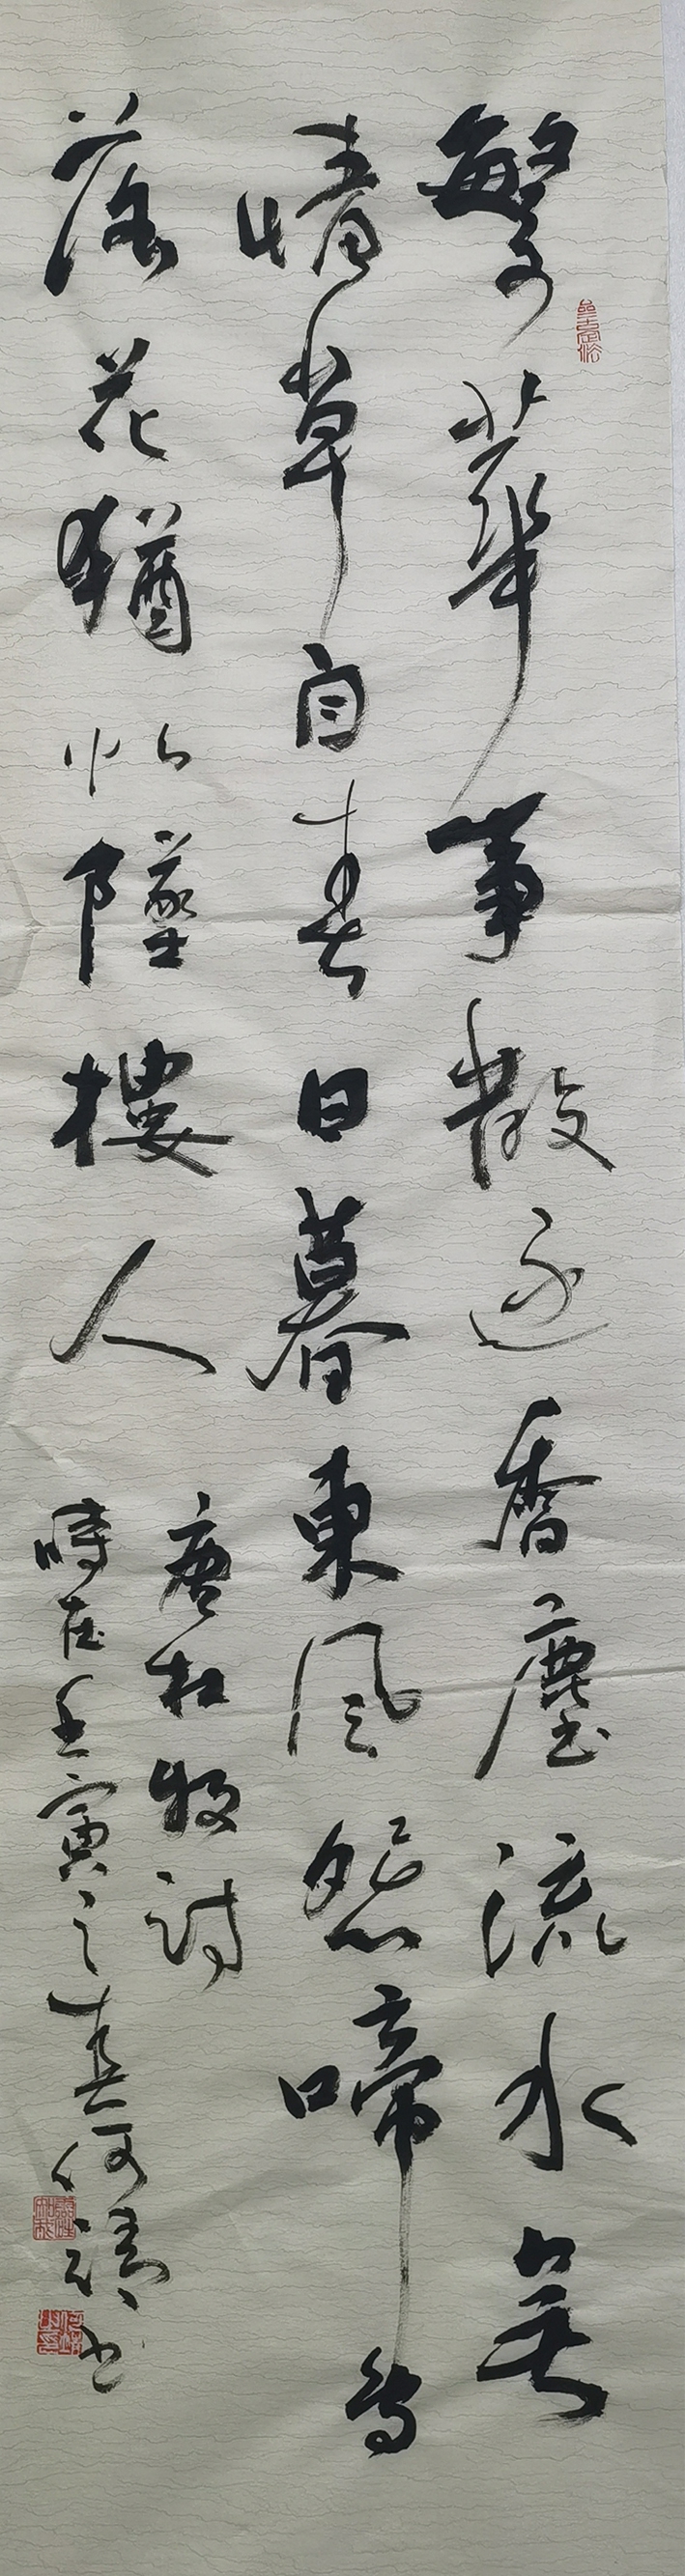 繁華事散逐香塵流水無
情草自春日暮東風怨啼鳥
落花猶似墜樓人
唐杜牧詩
時在壬寅之春何靖書